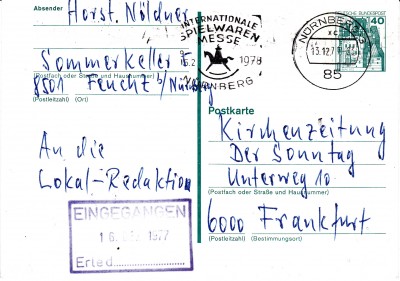 Absender
Horst. Nöldner
Sommerkeller
(Postfach oder Straße und Hausnummer)
8501 Feucht b/Nürnberg
(Postleitzahl) (Ort)
An die
Lokal-Redaktion
EINGEGANGEN
16. 1977
Erled.
INTERNATIONALE
SPIELWAREN
MESSE
1978
NÜRNBERG
NÜRNBERG
xc
13.12.7
85
DEUTSCHE BUNDESPOST
40
Postkarte
Kirchenzeitung
Der Sonntag
Unterweg 10
(Postfach oder Straße und Hausnummer)
6000 Frankfurt
(Postleitzahl) (Bestimmungsort)